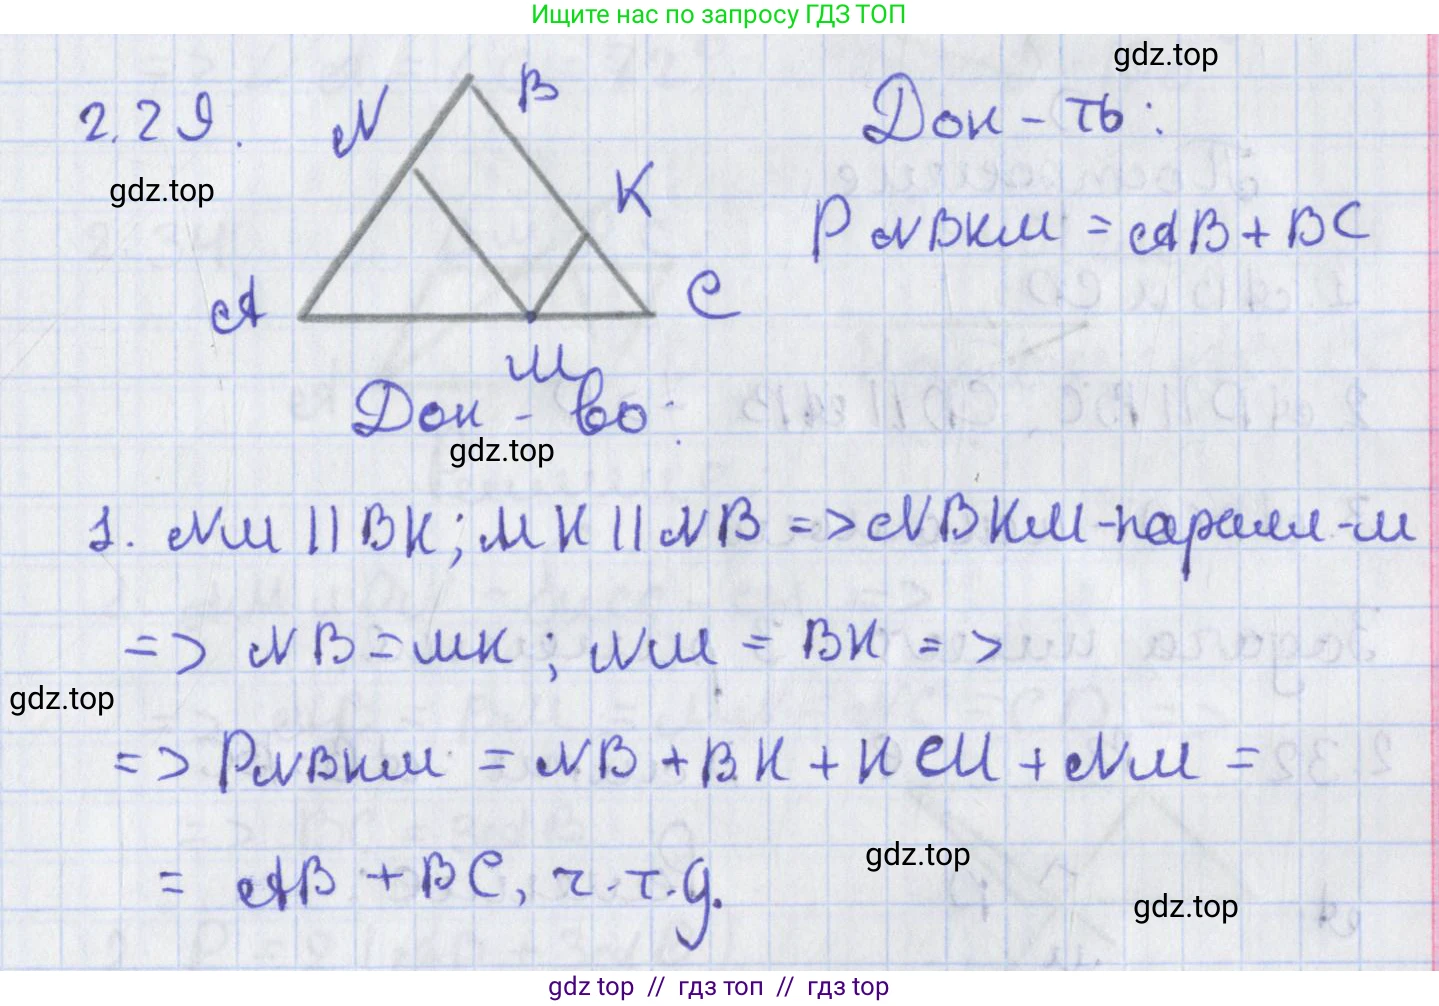 Ищите нас по запросу ГДЗ ТОП
gdz.top
2.29.
N
B
K
A
C
M
Док-ть:
gdz.top
P NBKM = AB + BC
Док-во:
gdz.top
1. NM || BK; MK || NB => NBKM-паралл-м
=> NB = MK; NM = BK =>
gdz.top
=> PNBKM = NB + BK + KM + NM =
= AB + BC, ч.т.д.
gdz.top
gdz.top
gdz top // гдз топ // гдз top